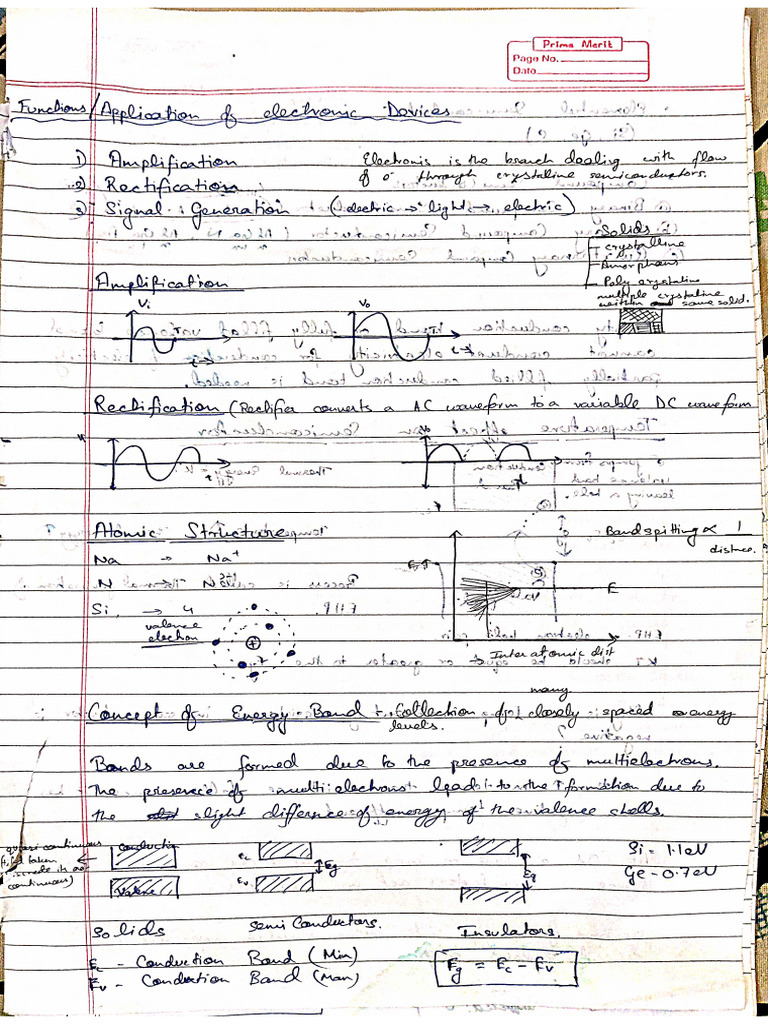 Prime Merit
Page No.
Date
Functions/Application of electronic Devices
1) Amplification
Electronis is the branch dealing with flow
2) Rectification
of e⁻ through crystalline semiconductors.
3) Signal Generation (electric → light → electric)
Solids
crystalline
Amorphous
Poly crystaline
multiple crystaline
within same solid.
Amplification
Vi
Vo
Rectification (Rectifier converts a AC waveform to a variable DC waveform
Atomic Structure
Band spitting ∝ 1
distnce.
Na → Na⁺
N
E
Si → 4
valence
electron
Interatomic dist
many
Concept of Energy Band Collection of closely spaced energy
levels.
Bands are formed due to the presence of multielectrons.
The presence of multi electrons leads to the formation due to
the slight difference of energy of the valence shells.
quasi continuous
taken
continuous)
Conduction
Valence
Ec
Ev
Eg
Eg
Si - 1.1eV
Ge - 0.7eV
Solids
Semi Conductors.
Insulators.
Ec - Conduction Band (Min)
Ev - Conduction Band (Max)
Eg = Ec - Ev